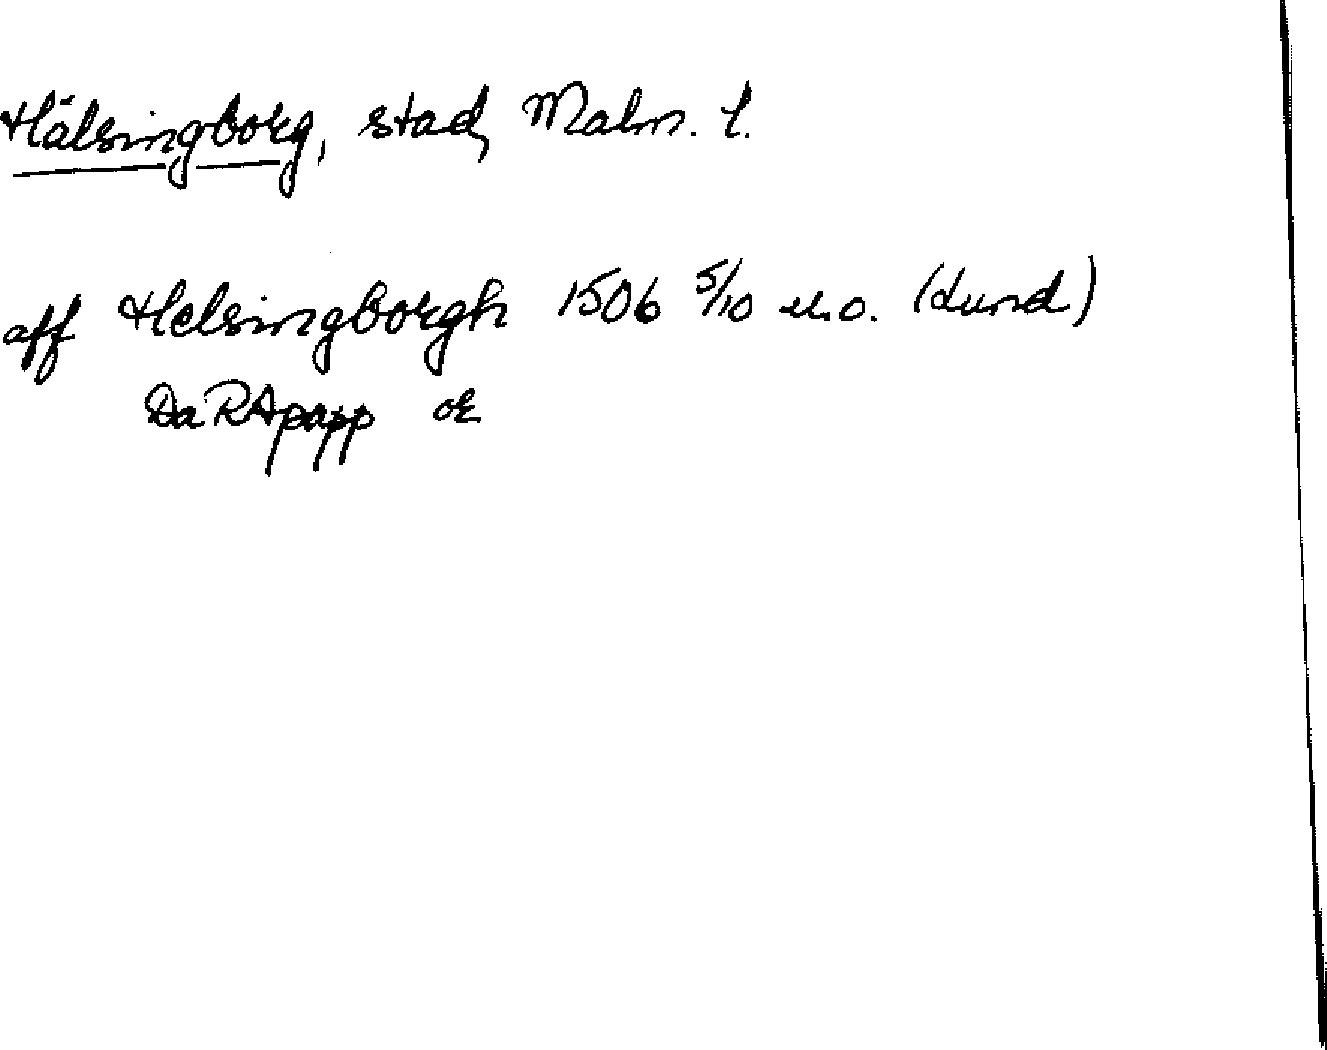 Hälsingborg, stad, Malm. l.
aff Helsingborgh 1506 5/10 u.o. (Lund)
Da RA papp or